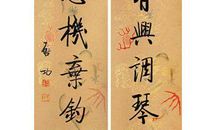 興調琴
機棄釣
启功